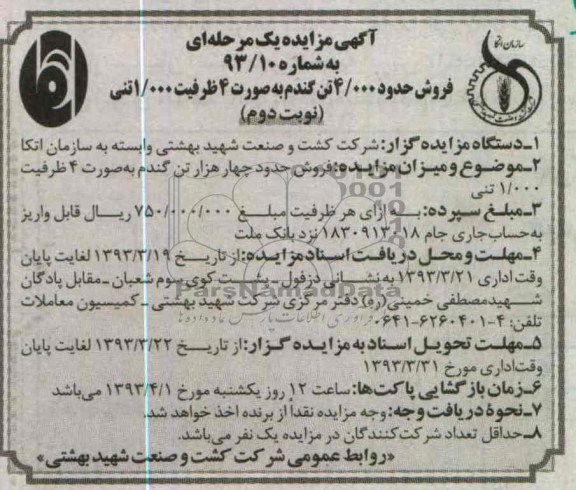 سازمان اتکا
آگهی مزایده یک مرحله‌ای
به شماره ۹۳/۱۰
فروش حدود ۴/۰۰۰ تن گندم به صورت ۴ ظرفیت ۱/۰۰۰ تنی
(نوبت دوم)
۱ـ دستگاه مزایده گزار: شرکت کشت و صنعت شهید بهشتی وابسته به سازمان اتکا
۲ـ موضوع و میزان مزایده: فروش حدود چهار هزار تن گندم به‌صورت ۴ ظرفیت
۱/۰۰۰ تنی
۳ـ مبلغ سپرده: به ازای هر ظرفیت مبلغ ۷۵۰/۰۰۰/۰۰۰ ریال قابل واریز
به‌حساب‌جاری جام ۱۸۳۰۹۱۳۰۱۸ نزد بانک ملت
۴ـ مهلت و محل دریافت اسناد مزایده: از تاریخ ۱۳۹۳/۳/۱۹ لغایت پایان
وقت اداری ۱۳۹۳/۳/۲۱ به نشانی دزفول ـ پشت کوی سوم شعبان ـ مقابل پادگان
شهید مصطفی خمینی(ره) دفتر مرکزی شرکت شهید بهشتی ـ کمیسیون معاملات
ParsNamadData
تلفن: ۴-۶۲۶۰۴۰۱-۰۶۴۱
۵ـ مهلت تحویل اسناد به مزایده گزار: از تاریخ ۱۳۹۳/۳/۲۲ لغایت پایان
وقت‌اداری مورخ ۱۳۹۳/۳/۳۱
۶ـ زمان بازگشایی پاکت‌ها: ساعت ۱۲ روز یکشنبه مورخ ۱۳۹۳/۴/۱ می‌باشد
۷ـ نحوۀ دریافت وجه: وجه مزایده نقداً از برنده اخذ خواهد شد.
۸ـ حداقل تعداد شرکت‌کنندگان در مزایده یک نفر می‌باشد.
«روابط عمومی شرکت کشت و صنعت شهید بهشتی»